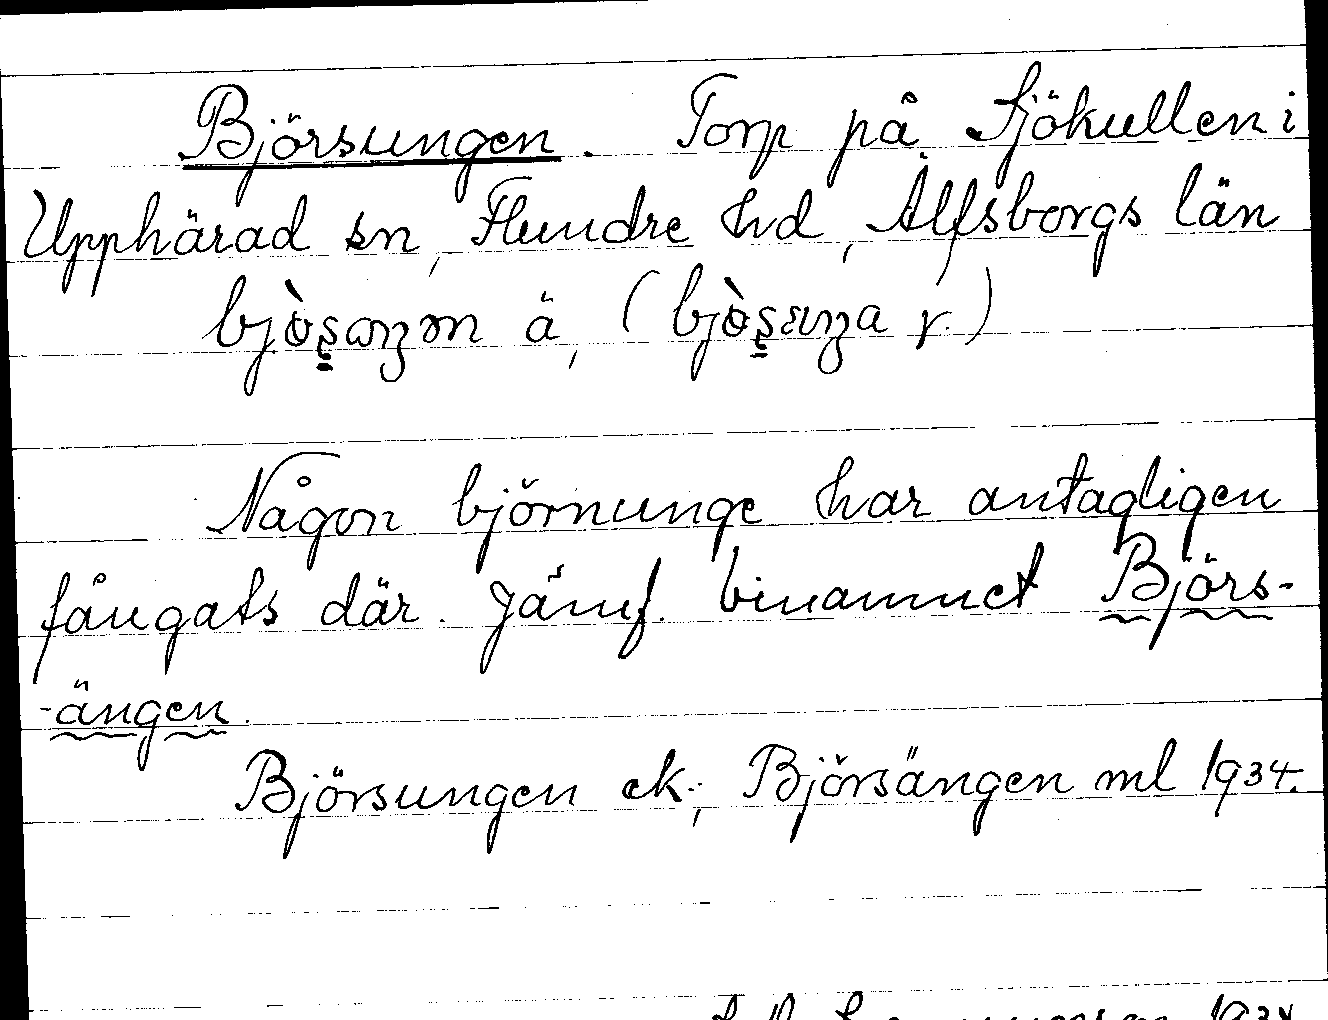 Björsungen. Torp på Sjökullen i
Upphärad sn, Flundre hd, Älfsborgs län
ä, (
Någon björnunge har antagligen
fångats där. Jämf. binamnet Björs-
-ängen.
Björsungen ek.; Björsängen ml 1934.
1934